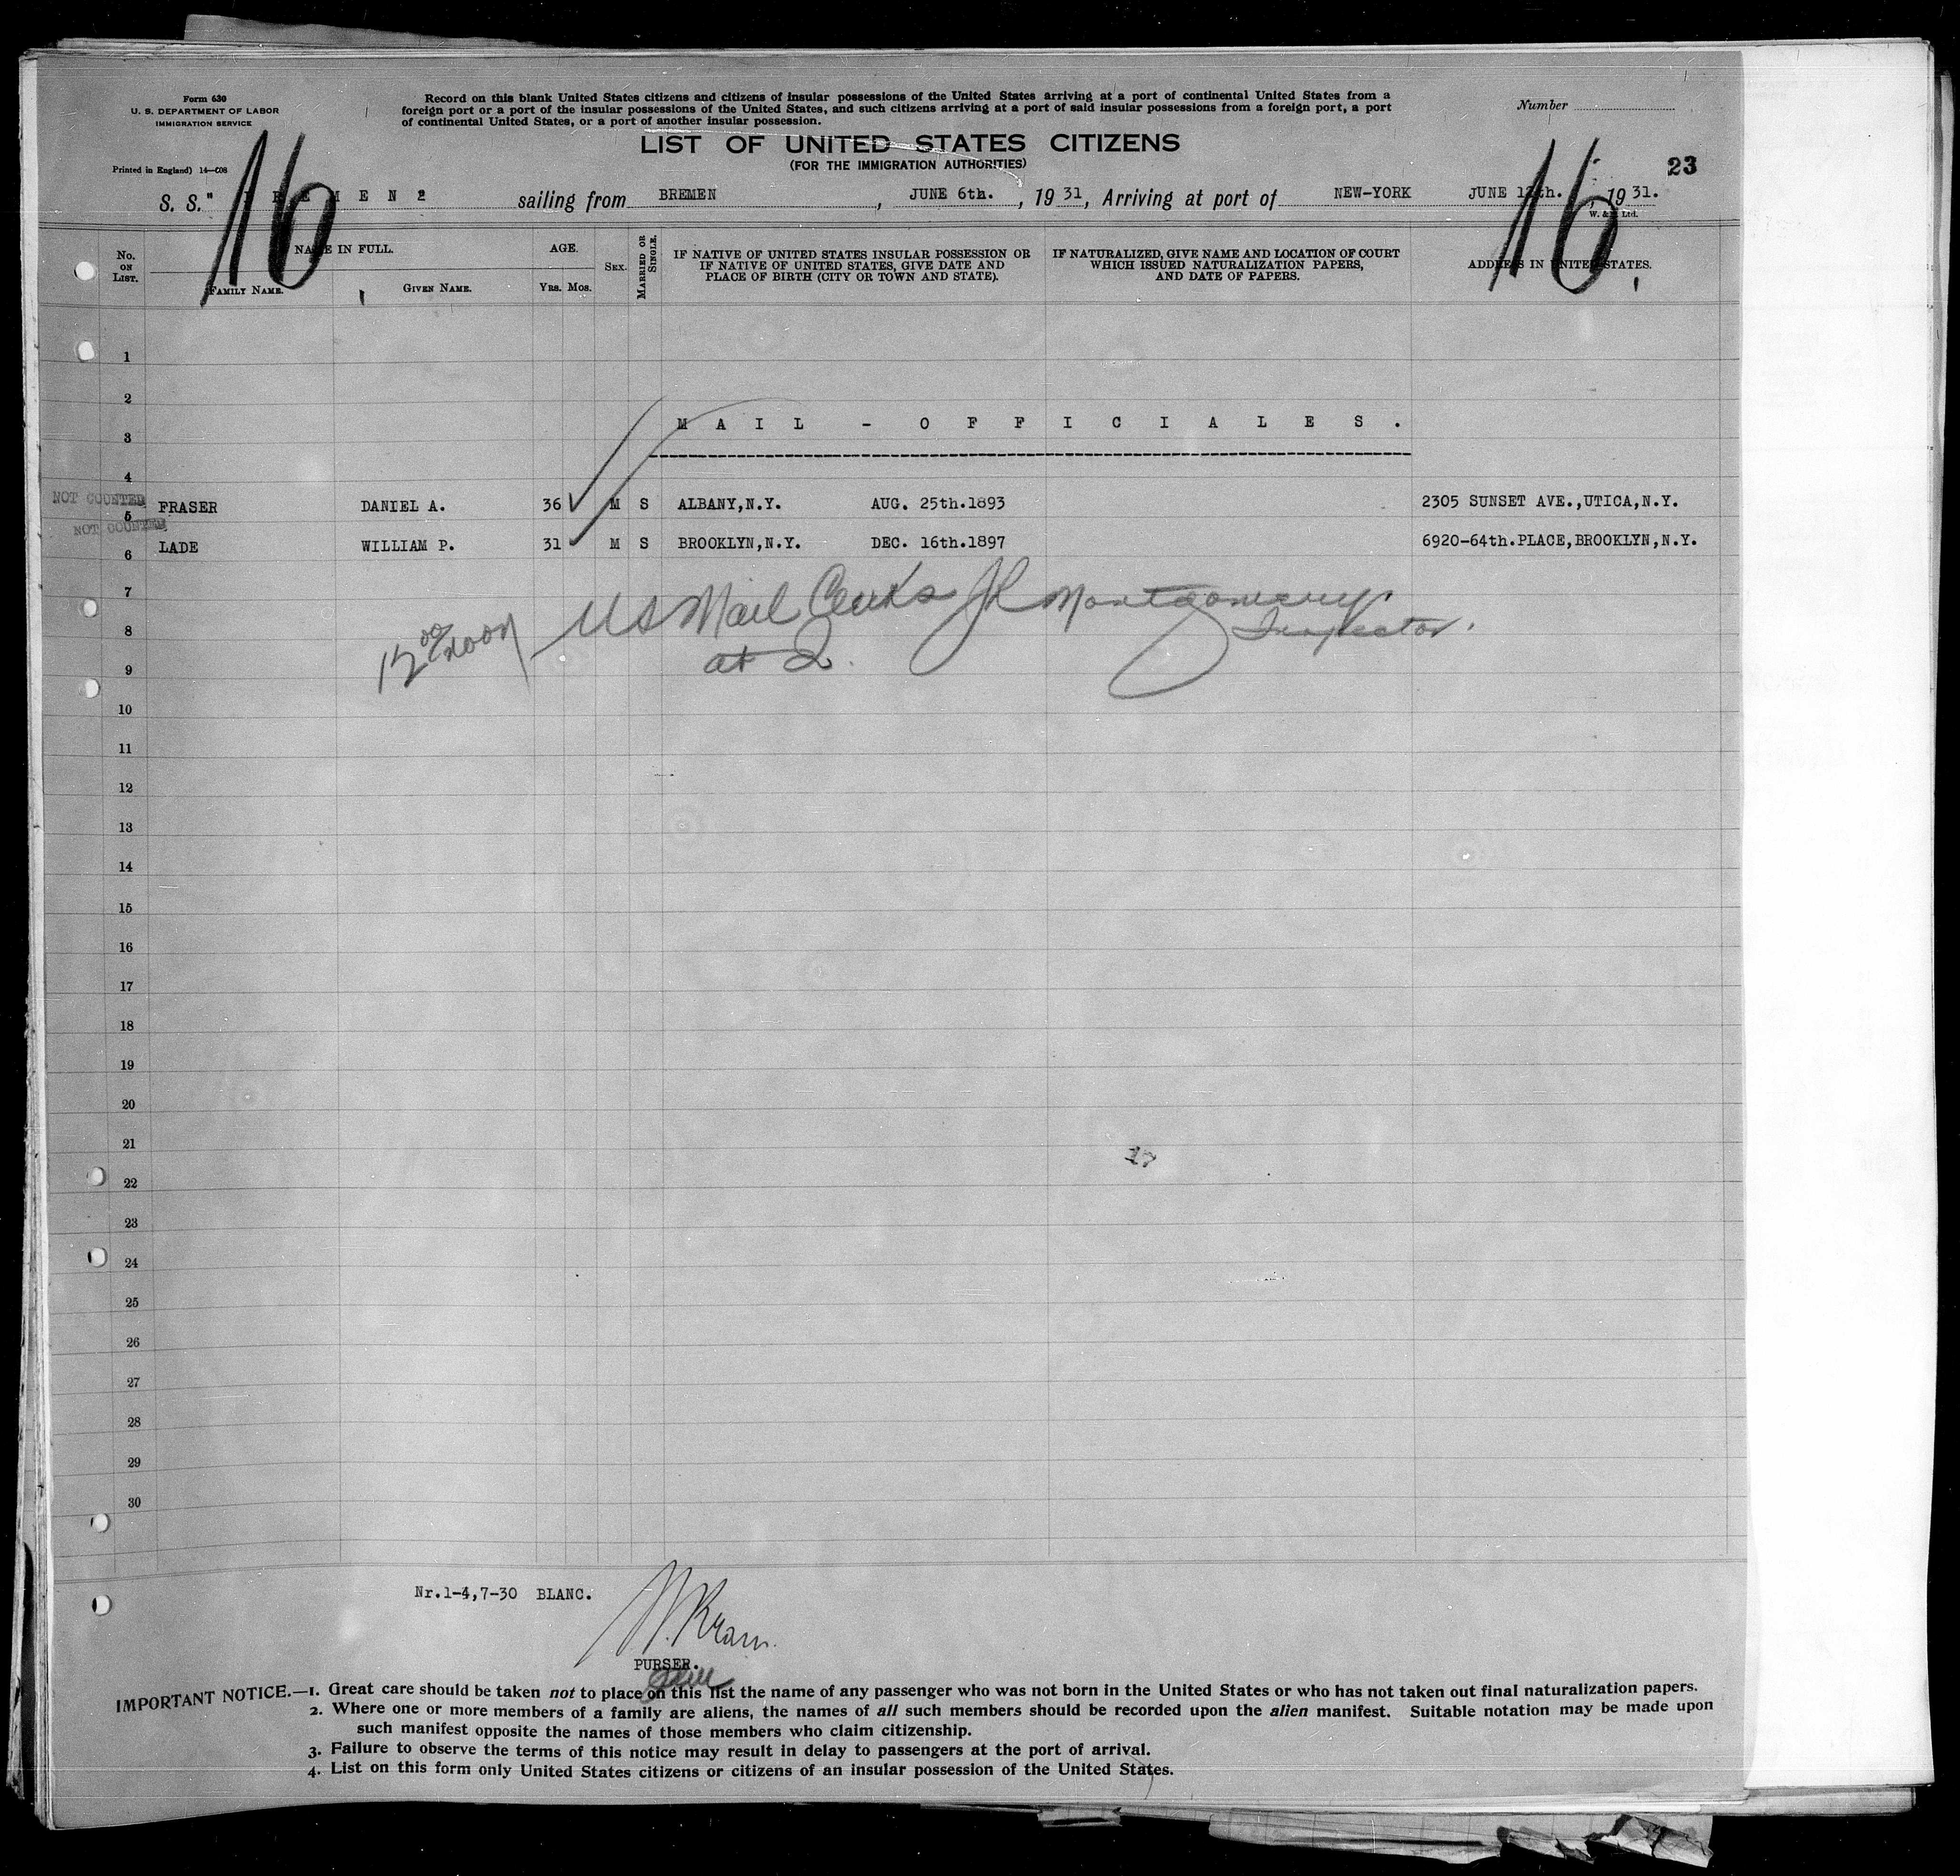 Form 630
U. S. DEPARTMENT OF LABOR
IMMIGRATION SERVICE
Printed in England) 14—608
Record on this blank United States citizens and citizens of insular possessions of the United States arriving at a port of continental United States from a
foreign port or a port of the insular possessions of the United States, and such citizens arriving at a port of said insular possessions from a foreign port, a port
of continental United States, or a port of another insular possession.
Number
LIST OF UNITED STATES CITIZENS
(FOR THE IMMIGRATION AUTHORITIES)
23
16 16
S. S. " B R E M E N 2 sailing from BREMEN, JUNE 6th., 19 31, Arriving at port of NEW-YORK JUNE 12th., 19 31.
W. & Ltd.
No. ON LIST. NAME IN FULL. FAMILY NAME. GIVEN NAME. AGE. YRS. MOS. SEX. MARRIED OR SINGLE.
IF NATIVE OF UNITED STATES INSULAR POSSESSION OR
IF NATIVE OF UNITED STATES, GIVE DATE AND
PLACE OF BIRTH (CITY OR TOWN AND STATE).
IF NATURALIZED, GIVE NAME AND LOCATION OF COURT
WHICH ISSUED NATURALIZATION PAPERS,
AND DATE OF PAPERS.
ADDRESS IN UNITED STATES.
1
2
M A I L - O F F I C I A L E S .
3
4
NOT COUNTED
5 FRASER DANIEL A. 36 M S ALBANY,N.Y. AUG. 25th.1893 2305 SUNSET AVE.,UTICA,N.Y.
NOT COUNTED
6 LADE WILLIAM P. 31 M S BROOKLYN,N.Y. DEC. 16th.1897 6920-64th.PLACE,BROOKLYN,N.Y.
7
12 00 noon US Mail Clerks JR Montgomery
8
Inspector.
at 2.
9
10
11
12
13
14
15
16
17
18
19
20
21
17
22
23
24
25
26
27
28
29
30
Nr.1-4,7-30 BLANC.
PURSER.
IMPORTANT NOTICE.—1. Great care should be taken not to place on this list the name of any passenger who was not born in the United States or who has not taken out final naturalization papers.
2. Where one or more members of a family are aliens, the names of all such members should be recorded upon the alien manifest. Suitable notation may be made upon
such manifest opposite the names of those members who claim citizenship.
3. Failure to observe the terms of this notice may result in delay to passengers at the port of arrival.
4. List on this form only United States citizens or citizens of an insular possession of the United States.